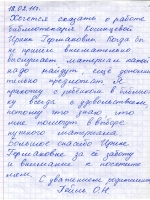 18.02.11г.
Хочется сказать о работе
библиотекаря
Ирине Германовне. Когда бы
не пришли внимательно
выслушает материал какой
надо найдут, ещё дополни-
тельно предложат. Я
прихожу с ребёнком в библиоте-
ку всегда с удовольствием,
потому что знаю, что
мне помогут в выборе
нужного материала.
Большое спасибо Ирине
Германовне за её работу
и внимание к посетите-
лям.
С уважением родительница
О.Н.